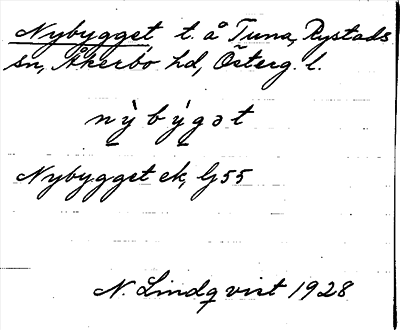 Nybygget, t. å Tuna, Rystads
sn, Åkerbo hd, Österg. l.
nỳ̠bý̠gət
Nybygget ek, G55
N. Lindqvist 1928